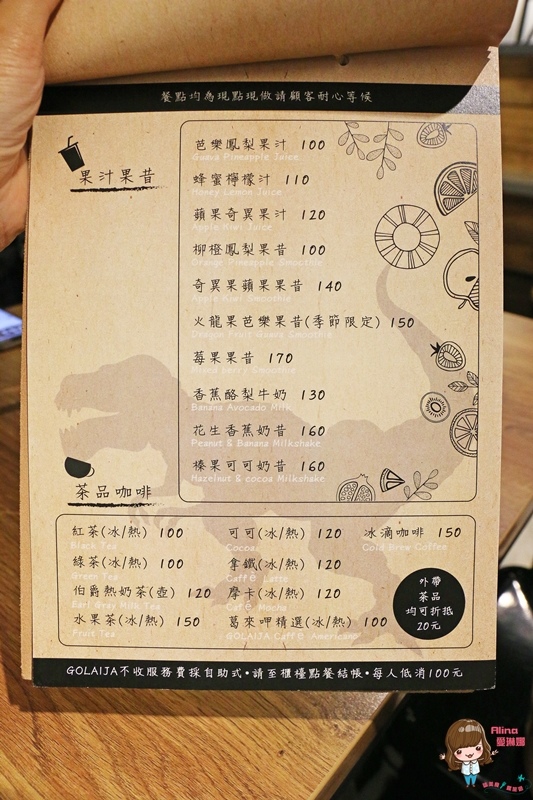 餐點均為現點現做請顧客耐心等候
果汁果昔
芭樂鳳梨果汁 100
Guava Pineapple Juice
蜂蜜檸檬汁 110
Honey Lemon Juice
蘋果奇異果汁 120
Apple Kiwi Juice
柳橙鳳梨果昔 100
Orange Pineapple Smoothie
奇異果蘋果果昔 140
Apple Kiwi Smoothie
火龍果芭樂果昔(季節限定) 150
Dragon Fruit Guava Smoothie
莓果果昔 170
Mixed Berry Smoothie
香蕉酪梨牛奶 130
Banana Avocado Milk
花生香蕉奶昔 160
Peanut & Banana Milkshake
榛果可可奶昔 160
Hazelnut & cocoa Milkshake
茶品咖啡
紅茶(冰/熱) 100 可可(冰/熱) 120 冰滴咖啡 150
Black Tea Cocoa Cold Brew Coffee
綠茶(冰/熱) 100 拿鐵(冰/熱) 120
Green Tea Caffè Latte
伯爵熱奶茶(壺) 120 摩卡(冰/熱) 120
Earl Gray Milk Tea Cafe Mocha
水果茶(冰/熱) 150 葛來呷精選(冰/熱) 100
Fruit Tea GOLAIJA Caffè Americano
外帶
茶品
均可折抵
20元
GOLAIJA不收服務費採自助式•請至櫃檯點餐結帳•每人低消100元
Alina
愛琳娜